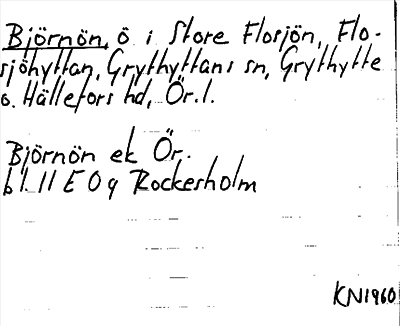 Björnön, ö i Store Flosjön, Flo-
sjöhyttan, Grythyttans sn, Grythytte
o. Hällefors hd, Ör. l.
Björnön ek Ör.
bl. 11 E 0 g Rockesholm
KN1960